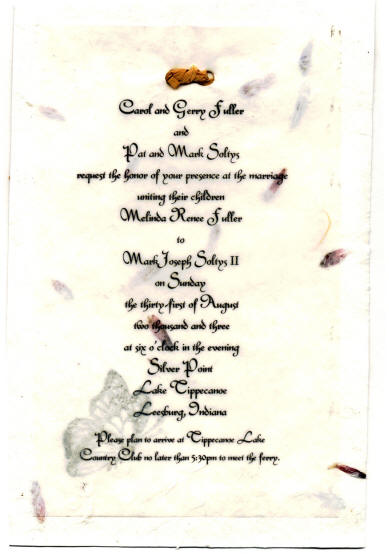 Carol and Gerry Fuller
and
Pat and Mark Soltys
request the honor of your presence at the marriage
uniting their children
Melinda Renee Fuller
to
Mark Joseph Soltys II
on Sunday
the thirty-first of August
two thousand and three
at six o'clock in the evening
Silver Point
Lake Tippecanoe
Leesburg, Indiana
Please plan to arrive at Tippecanoe Lake
Country Club no later than 5:30pm to meet the ferry.